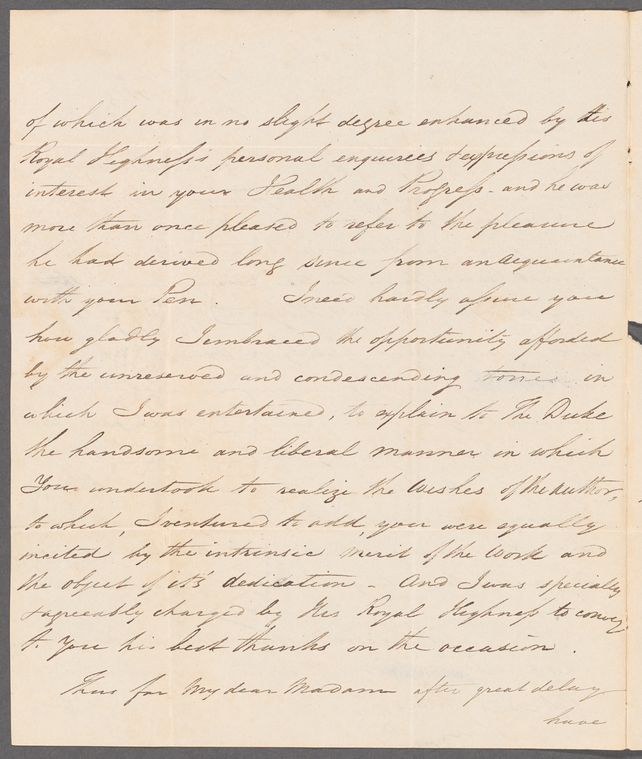 of which was in no slight degree enhanced by His
Royal Highness's personal enquiries & expressions of
interest in your Health and Progress - and he was
more than once pleased to refer to the pleasure
he had derived long since from an acquaintance
with your Pen. I need hardly assure you
how gladly I embraced the opportunity afforded
by the unreserved and condescending in
which I was entertained, to explain to The Duke
the handsome and liberal manner in which
You undertook to realize the Wishes of the Author,
to which, I ventured to add, you were equally
incited by the intrinsic merit of the Work and
the object of it's dedication - And I was specially
& agreeably charged by His Royal Highness to convey
to You his best thanks on the occasion.
Thus far My dear Madam after great delay
have